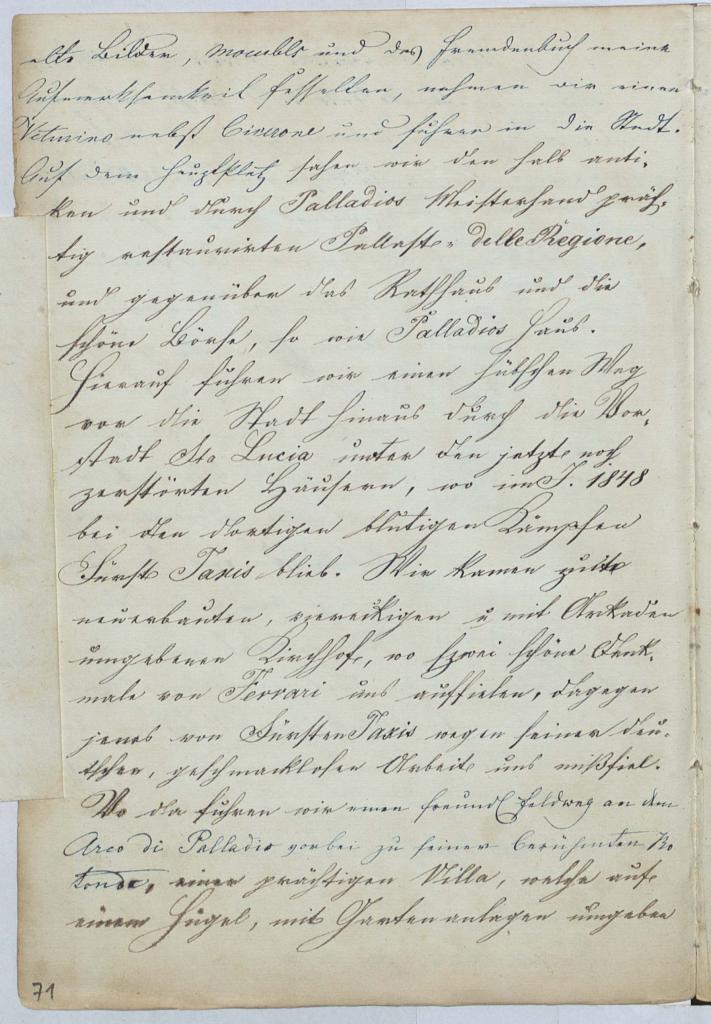 alte Bilder, Meubls und das Fremdenbuch meine
Aufmerksamkeit fesselten, nahmen wir einen
Veturino nebst Cicerone und fuhren in die Stadt.
Auf dem Hauptplatz sahen wir den halb anti-
ken und durch Palladios Meisterhand präch-
tig restaurirten Pallast- delle Regione,
und gegenüber das Rathhaus und die
schöne Börse, so wie Palladios Haus.
Hierauf fuhren wir einen hübschen Weg
vor die Stadt hinaus durch die Vor-
stadt Sta Lucia unter den jetzt noch
zerstörten Häusern, wo im J. 1848
bei den dortigen blutigen Kämpfen
Fürst Taxis blieb. Wir kamen zum
neuerbauten, viereckigen u mit Arkaden
umgebenen Kirchhof, wo zwei schöne Denk-
male von Ferrari uns auffielen, dagegen
jenes von Fürsten Taxis wegen seiner deu-
tschen, geschmacklosen Arbeit uns mißfiel.
Vo da fuhren wir einen freundl Feldweg an dem
Arco di Palladio vorbei zu seiner berühmten Ro
tonda, einer prächtigen Villa, welche auf
einem Hügel, mit Gartenanlagen umgeben
71